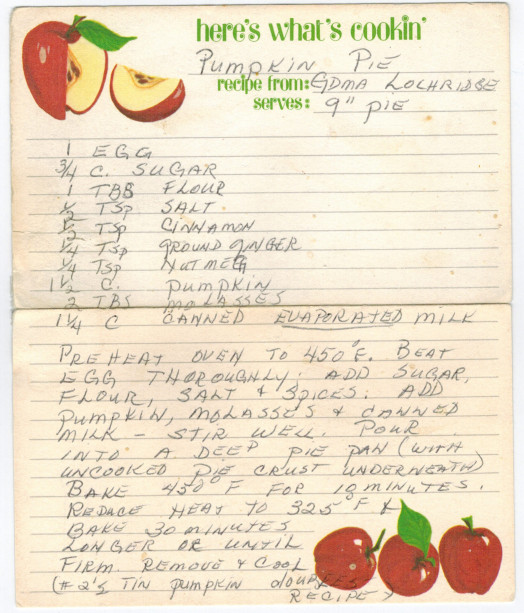 here's what's cookin'
PUMPKIN PIE
recipe from: GDMA LOCHRIDGE
serves: 9" PIE
1 EGG
3/4 C. SUGAR
1 TBS FLOUR
1/2 TSP SALT
1/2 TSP CINNAMON
1/4 TSP GROUND GINGER
1/4 TSP NUTMEG
1 1/2 C. PUMPKIN
2 TBS MOLASSES
1 1/4 C CANNED EVAPORATED MILK
PREHEAT OVEN TO 450°F. BEAT
EGG THOROUGHLY; ADD SUGAR,
FLOUR, SALT & SPICES; ADD
PUMPKIN, MOLASSES & CANNED
MILK - STIR WELL. POUR
INTO A DEEP PIE PAN (WITH
UNCOOKED PIE CRUST UNDERNEATH)
BAKE 450°F FOR 10 MINUTES.
REDUCE HEAT TO 325°F &
BAKE 30 MINUTES
LONGER OR UNTIL
FIRM. REMOVE & COOL
(#2 1/2 TIN PUMPKIN DOUBLES
RECIPE)